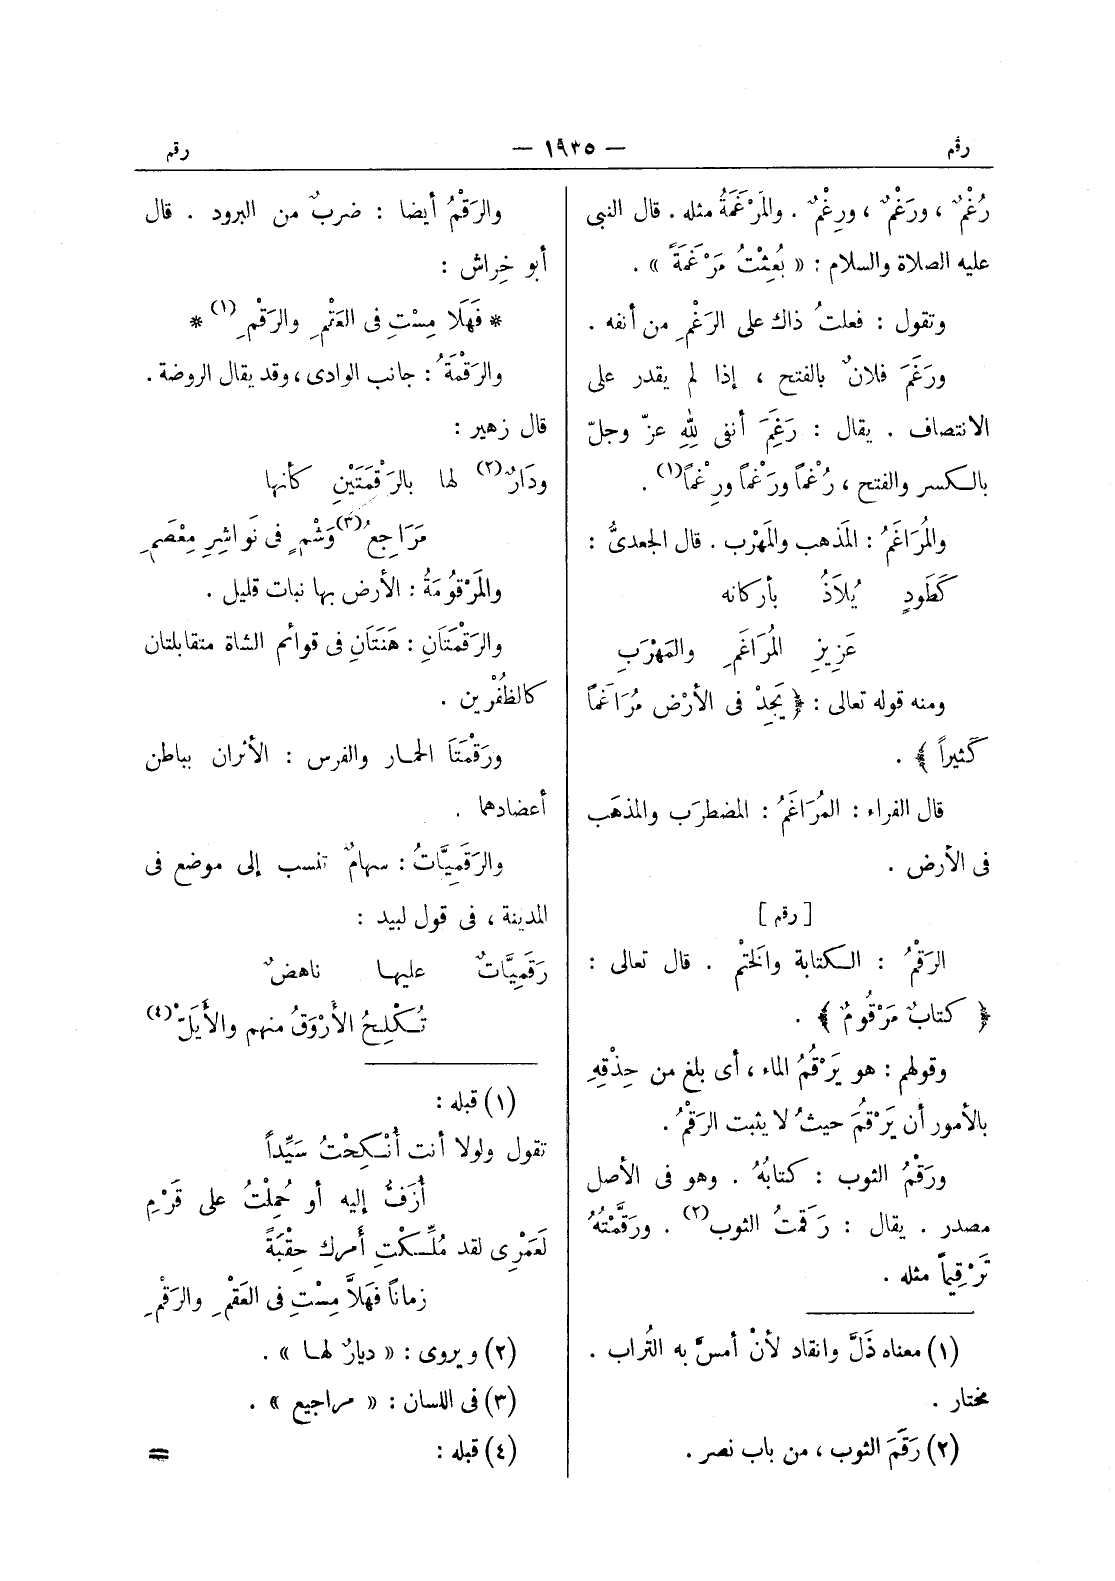 رقم
— ١٩٣٥ —
رقم
رُغْمٌ ، ورَغْمٌ ، ورِغْمٌ . والمَرْغَمَةُ مثله . قال النبى
عليه الصلاة والسلام : « بُعِثْتُ مَرْغَمَةً » .
وتقول : فعلتُ ذاك على الرَغْمِ من أنفه .
ورَغَمَ فلانٌ بالفتح ، إذا لم يقدر على
الانتصاف . يقال : رَغِمَ أنفى للهِ عزّ وجلّ
بالكسر والفتح ، رُغْماً ورَغْماً ورِغْماً(١) .
والمُرَاغَمُ : المَذهب والمَهْرب . قال الجعدىُّ :
كَطَودٍ يُلاَذُ بأركانه
عَزِيزِ المُرَاغَمِ والمَهْرَبِ
ومنه قوله تعالى : ﴿ يَجِدْ فى الأرْض مُرَاغَماً
كَثيراً ﴾ .
قال الفراء : المُرَاغَمُ : المضطرَب والمذهَب
فى الأرض .
[ رقم ]
الرَقْمُ : الكتابة والخَتْم . قال تعالى :
﴿ كتابٌ مَرْقُومٌ ﴾ .
وقولهم : هو يَرْقُمُ الماء ، أى بلغ من حِذْقِهِ
بالأمور أن يَرْقُمَ حيثُ لا يثبت الرَقْمُ .
ورَقْمُ الثوب : كتابُهُ . وهو فى الأصل
مصدر . يقال : رَقَمتُ الثوب(٢) . ورَقَّمْتُهُ
تَرْقِيماً مثله .
(١) معناه ذَلَّ وانقاد لأنْ أمسَّ به التُراب .
مختار .
(٢) رَقَمَ الثوب ، من باب نصر .
والرَقْمُ أيضا : ضربٌ من البرود . قال
أبو خِراش :
* فَهَلَا مِسْتِ فى العَتْمِ والرَقْمِ(١) *
والرَقْمَةُ : جانب الوادى ، وقد يقال الروضة .
قال زهير :
ودَارٌ(٢) لها بالرَقْمَتَيْنِ كأنها
مَرَاجِعُ(٣) وَشْمٍ فى نَوَاشِرِ مِعْصَمِ
والمَرْقُومَةُ : الأرض بها نبات قليل .
والرَقْمَتَانِ : هَنَتَانِ فى قوائم الشاة متقابلتان
كالظفُرْين .
ورَقْمَتَا الحمار والفرس : الأثران بباطن
أعضادهما .
والرَقَمِيَّاتُ : سهامٌ تنسب إلى موضع فى
المدينة ، فى قول لبيد :
رَقَمِيَّاتٌ عليها ناهضٌ
تُكْلِحُ الأَرْوَقُ منهم والأَيَلّْ(٤)
(١) قبله :
تقول ولولا أنت أُنْكِحْتُ سَيِّداً
أُزَفُّ إليه أو حُمِلْتُ على قَرْمِ
لَعَمْرِى لقد مُلِّكْتِ أَمرك حِقْبَةً
زماناً فَهَلاَّ مِسْتِ فى العَقْمِ والرَقْمِ
(٢) ويروى : « ديارٌ لها » .
(٣) فى اللسان : « مراجيع » .
(٤) قبله :
=